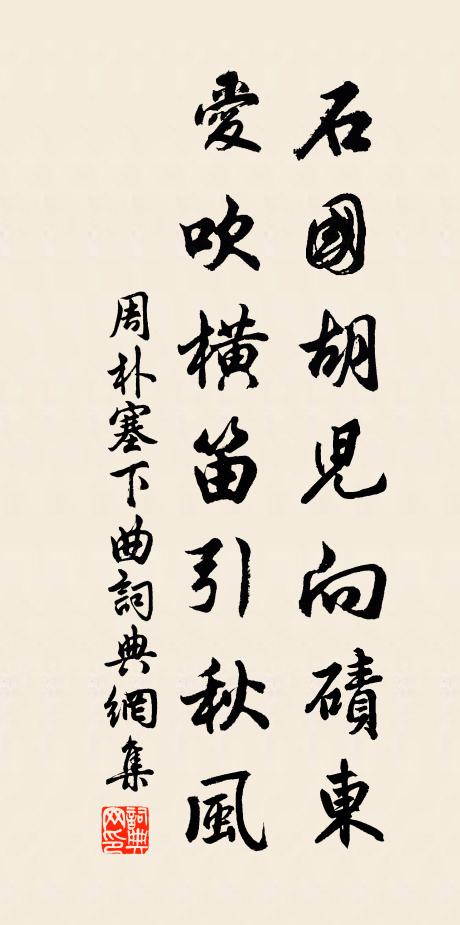 石國胡兒向磧東
愛吹橫笛引秋風
周朴塞下曲詞典網集
詞典网印